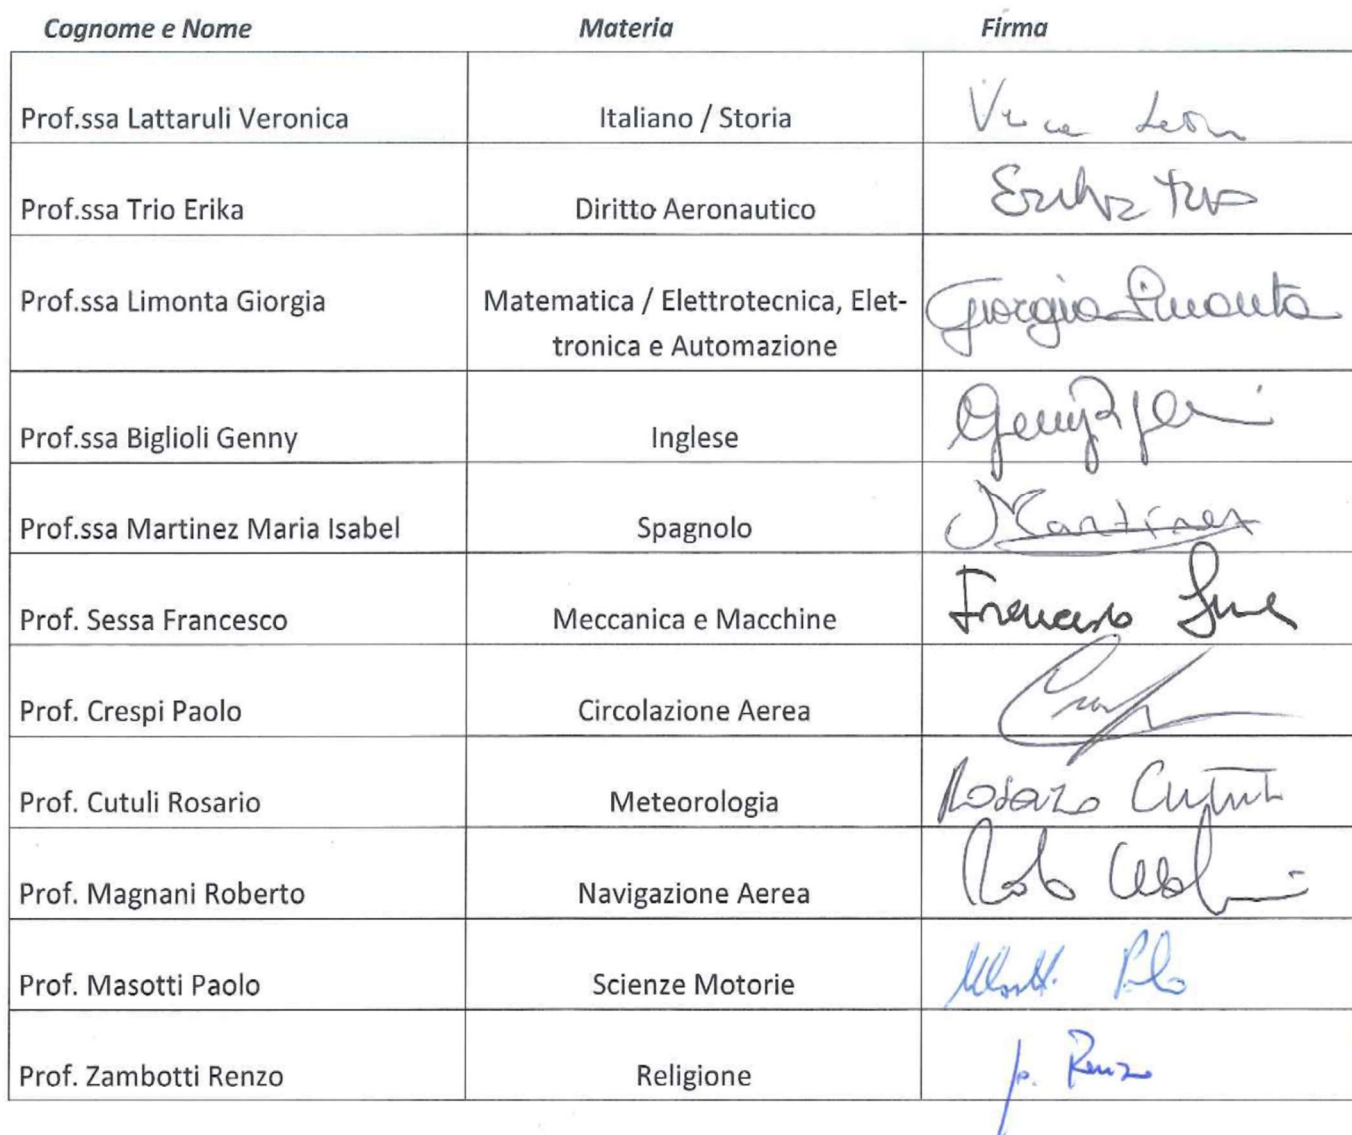 Cognome e Nome Materia Firma
Prof.ssa Lattaruli Veronica Italiano / Storia
Prof.ssa Trio Erika Diritto Aeronautico Erika Trio
Prof.ssa Limonta Giorgia Matematica / Elettrotecnica, Elet- Giorgia Limonta
tronica e Automazione
Prof.ssa Biglioli Genny Inglese Genny
Prof.ssa Martinez Maria Isabel Spagnolo Martinez
Prof. Sessa Francesco Meccanica e Macchine Francesco
Prof. Crespi Paolo Circolazione Aerea
Prof. Cutuli Rosario Meteorologia Rosario Cutuli
Prof. Magnani Roberto Navigazione Aerea
Prof. Masotti Paolo Scienze Motorie
Prof. Zambotti Renzo Religione p. Renzo